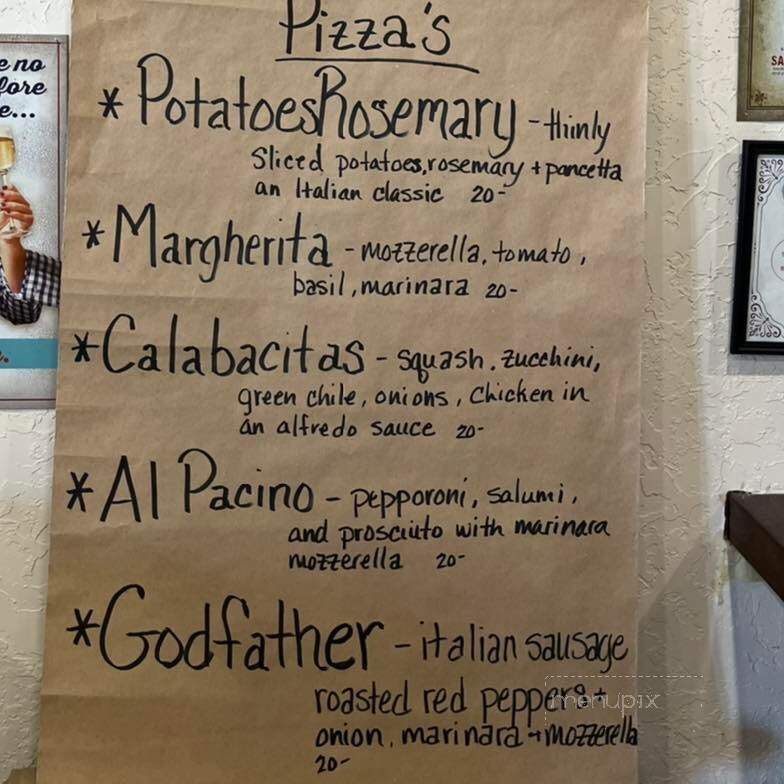 Pizza's
* Potatoes Rosemary - thinly
sliced potatoes, rosemary + pancetta
an Italian classic 20-
* Margherita - mozzerella, tomato,
basil, marinara 20-
* Calabacitas - squash, zucchini,
green chile, onions, chicken in
an alfredo sauce 20-
* Al Pacino - pepporoni, salumi,
and prosciuto with marinara
mozzerella 20-
* Godfather - italian sausage
roasted red peppers +
onion, marinara + mozzerella
20-
e no
fore
e...
SA
menupix